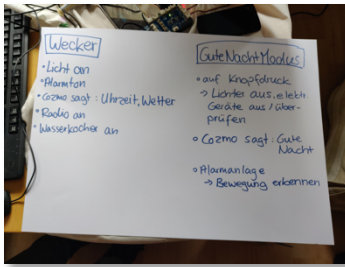 Wecker
• Licht an
• Alarmton
• Cozmo sagt: Uhrzeit, Wetter
• Radio an
• Wasserkocher an
Gute Nacht Modus
• auf Knopfdruck
→ Lichter aus, elektr.
Geräte aus / über-
prüfen
• Cozmo sagt: Gute
Nacht
• Alarmanlage
→ Bewegung erkennen